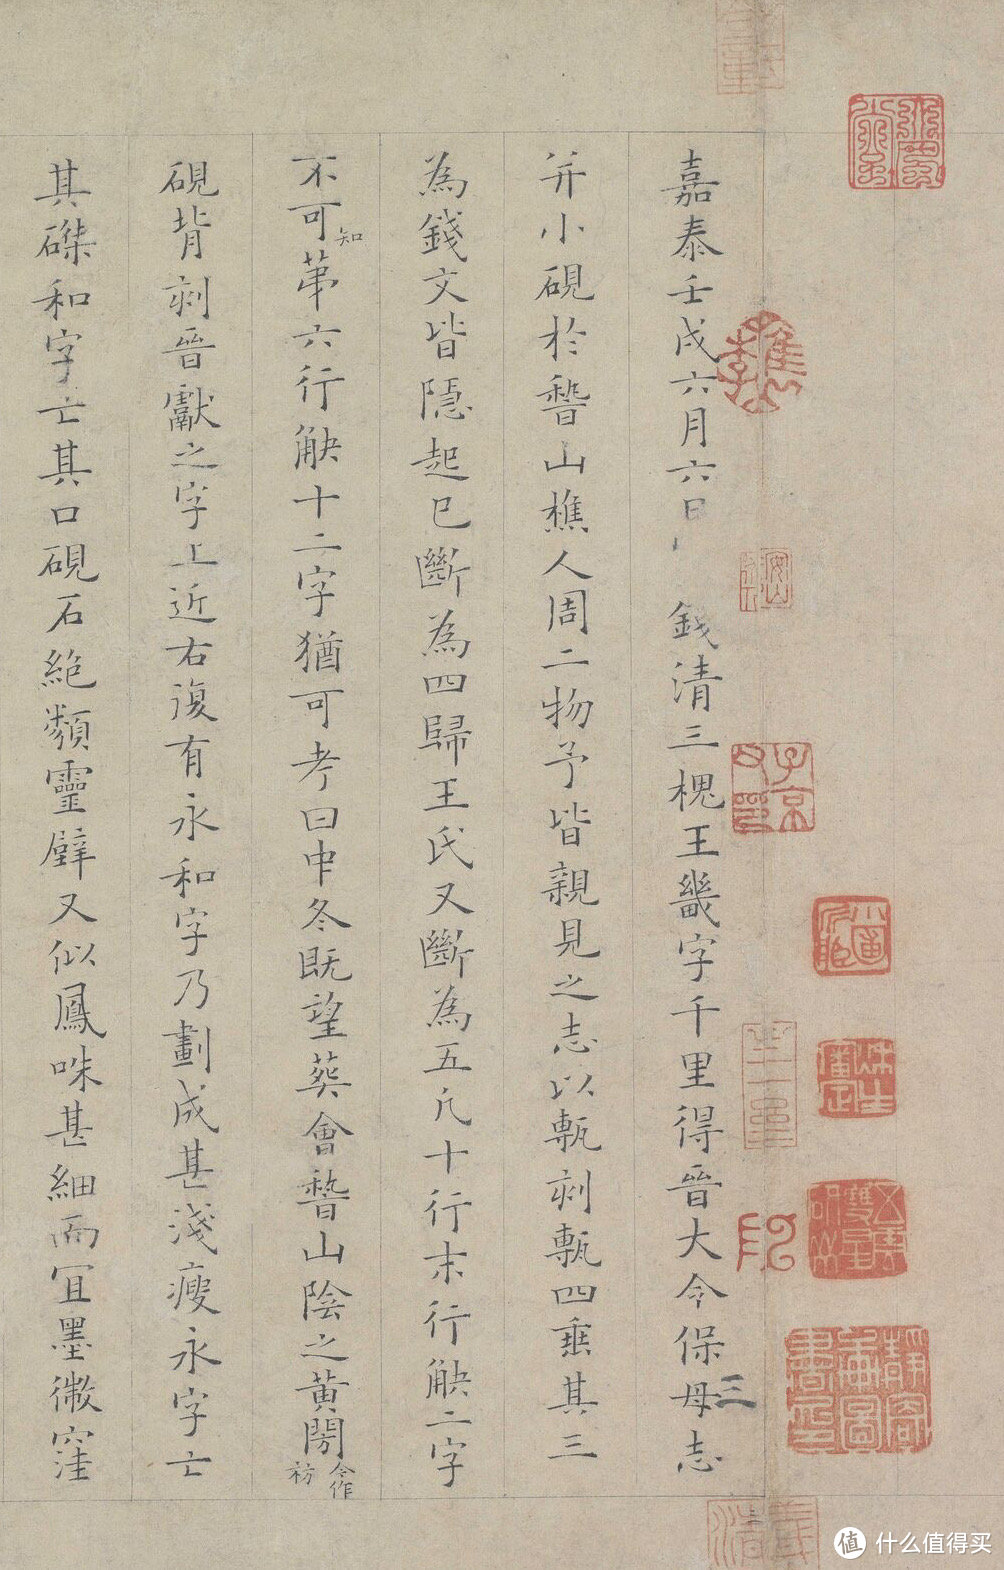 嘉泰壬戌六月六日 錢清三槐王畿字千里得晉大令保母志
三
并小硯於稽山樵人周二物予皆親見之志以甎刻甎四垂其三
為錢文皆隱起已斷為四歸王氏又斷為五凡十行末行缺二字
不可知
弟六行缺十二字猶可考曰中冬既望葬會稽山陰之黃閍
今作
祊
硯背刻晉獻之字上近右復有永和字乃劃成甚淺瘦永字亡
其磔和字亡其口硯石絕類靈壁又似鳳咮甚細而宜墨微窪
子京
值 什么值得买